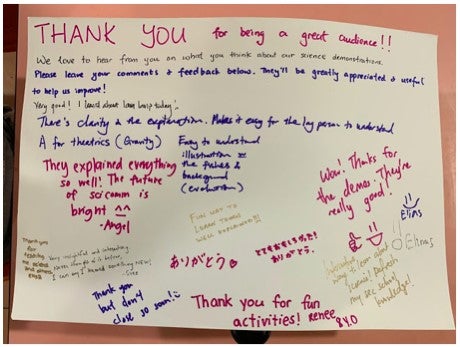 THANK YOU for being a great audience!!
We love to hear from you on what you think about our science demonstrations.
Please leave your comments & feedback below. They'll be greatly appreciated & useful
to help us improve!
Very good! I learnt about today
There's clarity & the explanation. Makes it easy for the lay person to understand
A for theatrics (Gravity)
Easy to understand
illustration
the fishes &
background
(evolution)
They explained everything
so well! The future
of scicomm is
bright ^^
-Angel
Wow! Thanks for
the demos. They're
really good!
Elins
Ehms
FUN WAY TO
LEARN THINGS
WELL EXPLAINED!!!
Thank you
for
teaching
me science
and others
Very insightful and interesting
Never thought of it before,
I can say I learned something NEW!
ありがとう
とてもおもしろかった!
ありがとう。
Interesting
way to learn about
science! Refresh
my sec school
knowledge!
Thank you
but don't
close so soon!
Thank you for fun
activities! Renee
8 y.o